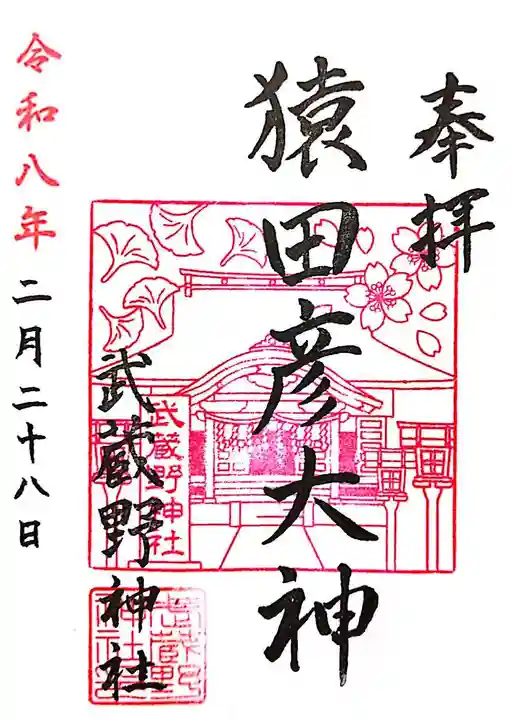 奉拝
猿田彦大神
武蔵野神社
武蔵野神社
武蔵野神社
令和八年二月二十八日